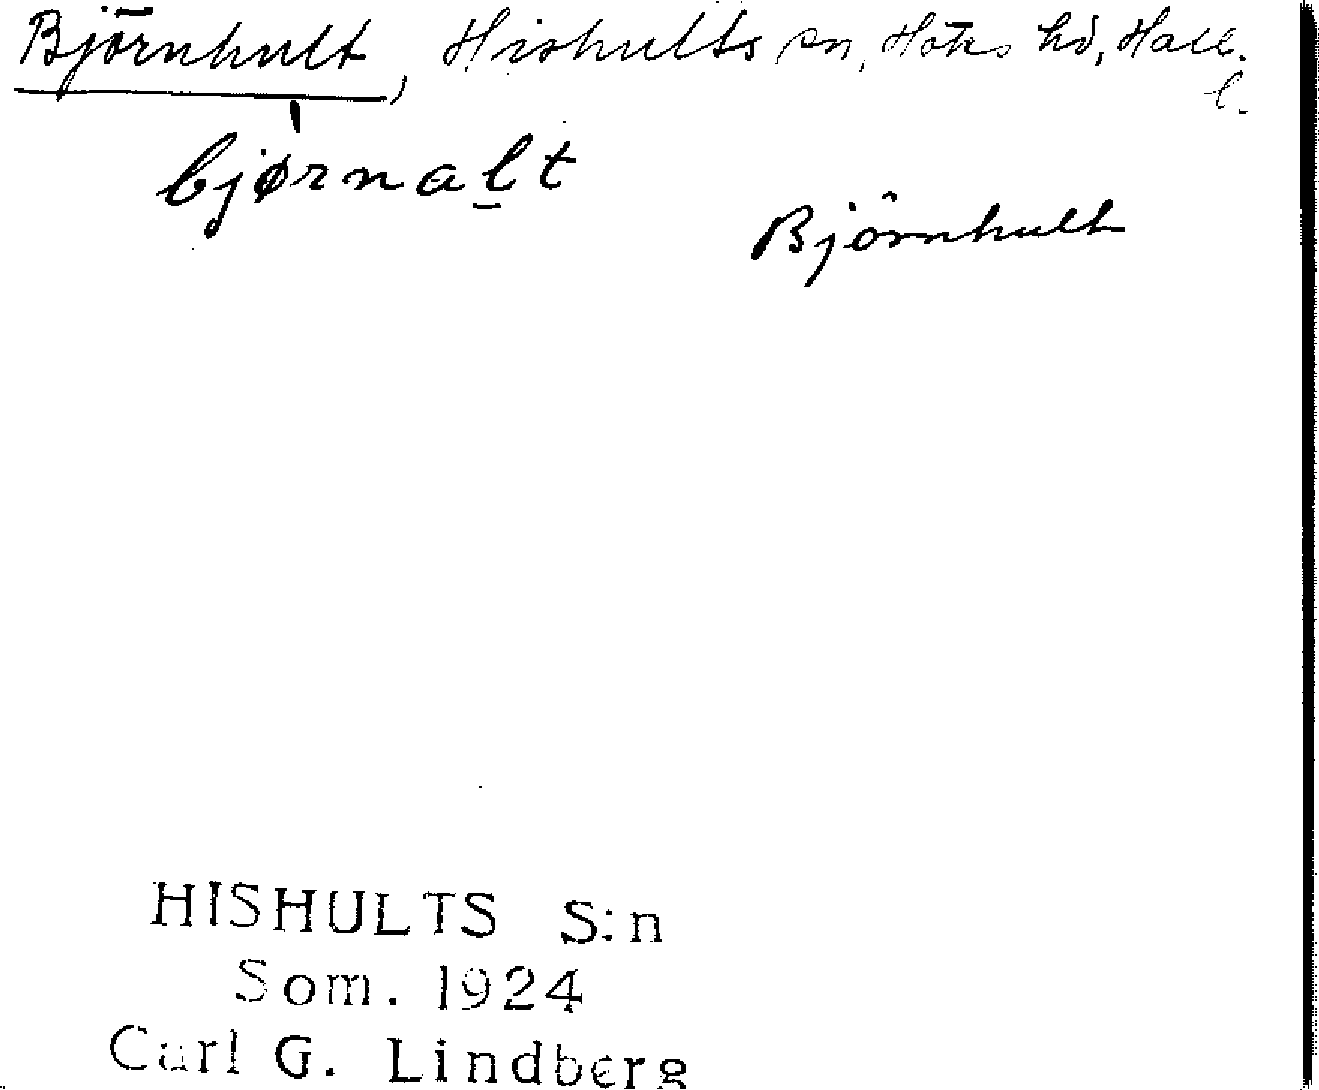 Björnhult, Hishults sn, Höks hd, Hall.
l.
bjørnalt
Björnhult
HISHULTS S:n
Som. 1924
Carl G. Lindberg